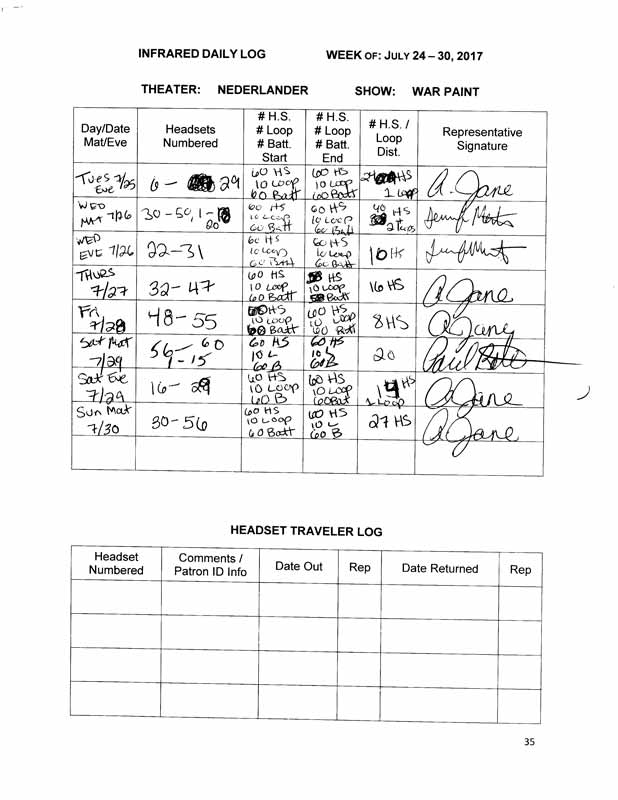 INFRARED DAILY LOG WEEK OF: JULY 24 – 30, 2017
THEATER: NEDERLANDER SHOW: WAR PAINT
Day/Date Mat/Eve Headsets Numbered # H.S. # Loop # Batt. Start # H.S. # Loop # Batt. End # H.S. / Loop Dist. Representative Signature
Tues 7/25 Eve 6 – 29 60 HS 10 Loop 60 Batt 60 HS 10 Loop 60 Batt 24 HS 1 Loop A. Jane
WED MAT 7/26 30-50, 1- 20 60 HS 10 Loop 60 Batt 60 HS 10 Loop 60 Batt 40 HS
WED EVE 7/26 22-31 60 HS 10 Loop 60 Batt 60 HS 10 Loop 60 Batt 10 HS
THURS 7/27 32-47 60 HS 10 Loop 60 Batt HS 10 Loop Batt 16 HS A Jane
Fri 7/28 48-55 HS 10 Loop Batt 60 HS 10 Loop 60 Batt 8 HS A Jane
Sat Mat 7/29 56-60 1-15 60 HS 10 L 60 B 60 HS 10 L 60 B 20 Paul
Sat Eve 7/29 16- 29 60 HS 10 Loop 60 B 60 HS 10 Loop 60 Bat 14 HS 1 Loop A Jane
Sun Mat 7/30 30-56 60 HS 10 Loop 60 Batt 60 HS 10 L 60 B 27 HS A Jane
HEADSET TRAVELER LOG
Headset Numbered Comments / Patron ID Info Date Out Rep Date Returned Rep
35